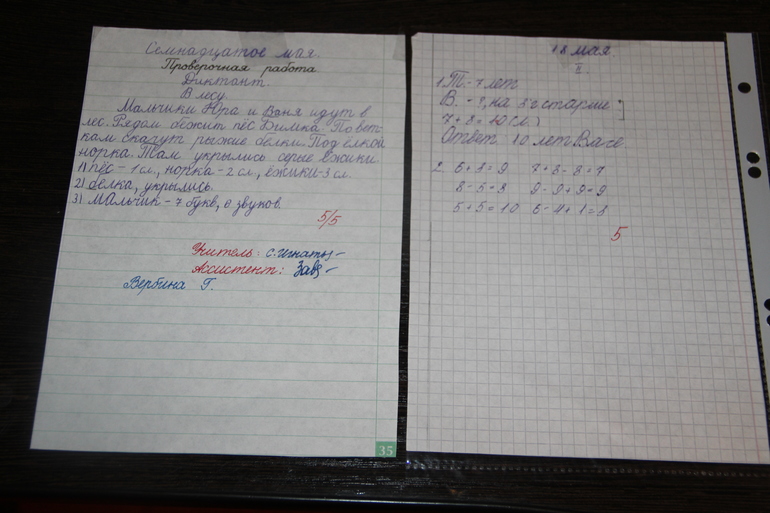 Семнадцатое мая.
Проверочная работа.
Диктант.
В лесу.
Мальчики Юра и Ваня идут в
лес. Рядом бежит пёс Бимка. По вет-
кам скачут рыжие белки. Под ёлкой
норка. Там укрылись серые ёжики.
1) пёс – 1 сл., норка – 2 сл., ёжики – 3 сл.
2) белка, укрылись.
3) Мальчик – 7 букв, 6 звуков.
5/5
Учитель:
Ассистент:
Вербина Г.
35
18 мая
II.
1. Т. – 7 лет
В. – ?, на 3 г. старше
7 + 3 = 10 (л.)
Ответ 10 лет Васе.
2. 6 + 3 = 9 7 + 8 - 8 = 7
8 - 5 = 3 9 - 9 + 9 = 9
5 + 5 = 10 6 - 4 + 1 = 3
5